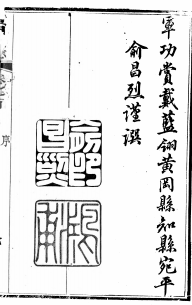 軍功賞戴藍翎黃岡縣知縣宛平
俞昌烈謹撰
俞印
昌烈
序